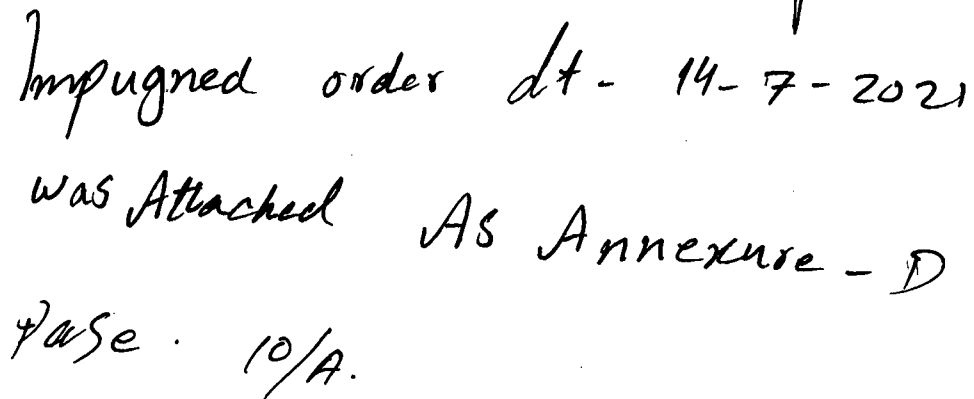 Impugned order dt- 14-7-2021
was Attached As Annexure-D
Page. 10/A.